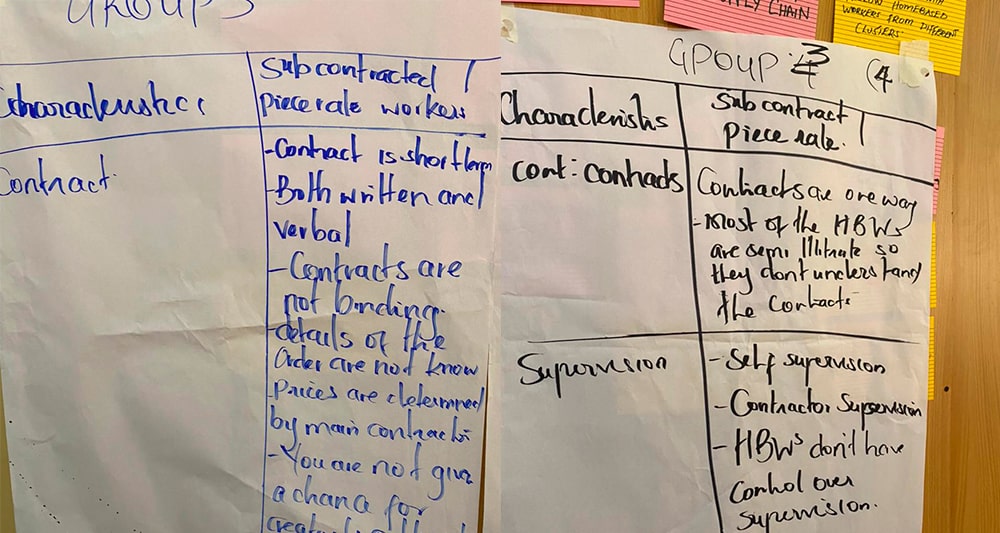 GROUP 3
Characteristics
Subcontracted /
piece rate workers
Contract
-Contract is short term
-Both written and
verbal
-Contracts are
not binding.
-details of the
order are not know
Prices are determined
by main contractor
-You are not give
a chance for
PPLY CHAIN
HOMEBASED
WORKERS FROM DIFFERENT
CLUSTERS
GROUP
(4
Characteristics
Subcontract /
piece rate.
cont: contracts
Contracts are one way
-Most of the HBWs
are semi illitrate so
they dont understand
the contracts
Supervision
-Self supervision
-Contractor Supervision
-HBWs don't have
Control over
Supervision.